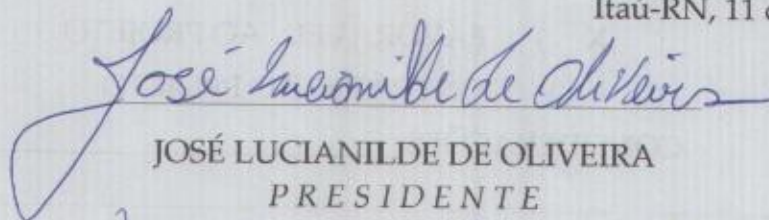 Itaú-RN, 11
José Lucianilde de Oliveira
JOSÉ LUCIANILDE DE OLIVEIRA
PRESIDENTE